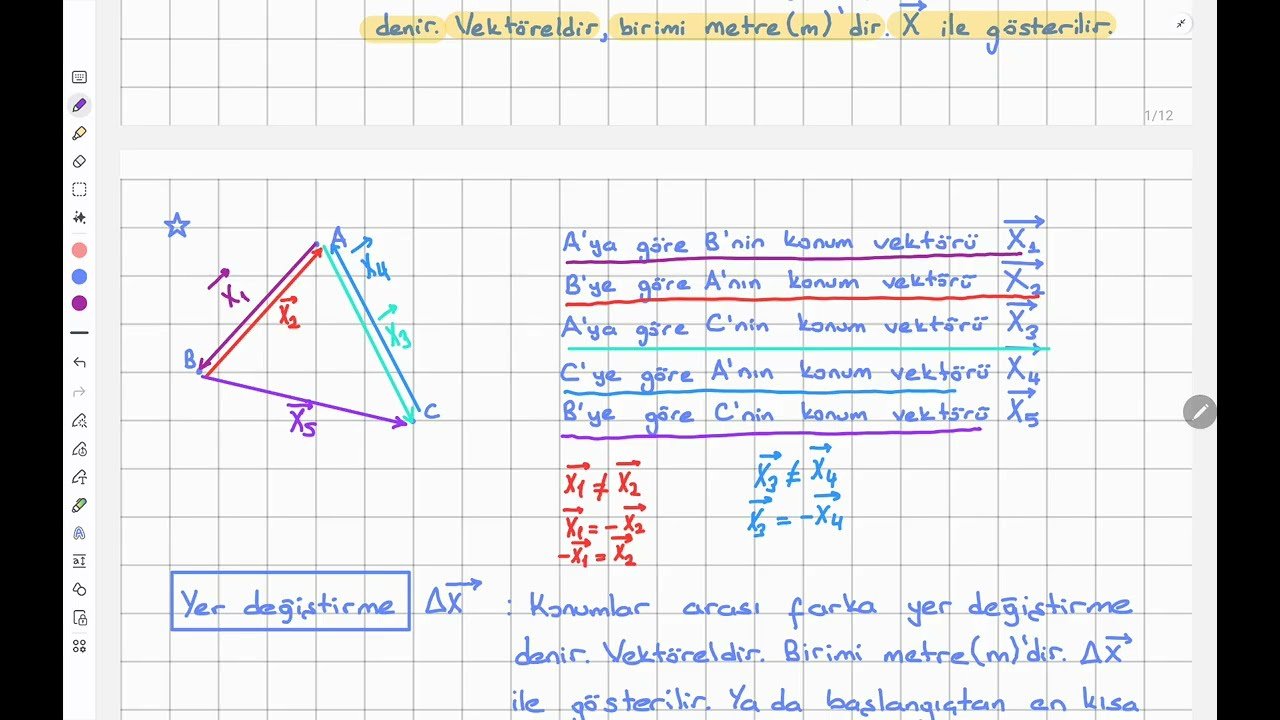 denir. Vektöreldir, birimi metre(m)'dir. X ile gösterilir.
1/12
A
X4
X1
X2
X3
B
C
X5
A'ya göre B'nin konum vektörü X1
B'ye göre A'nın konum vektörü X2
A'ya göre C'nin konum vektörü X3
C'ye göre A'nın konum vektörü X4
B'ye göre C'nin konum vektörü X5
X1 ≠ X2
X1 = -X2
-X1 = X2
X3 ≠ X4
X3 = -X4
Yer değiştirme ΔX : Konumlar arası farka yer değiştirme
denir. Vektöreldir. Birimi metre(m)'dir. ΔX
ile gösterilir. Ya da başlangıçtan en kısa